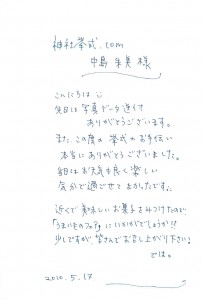 神社挙式.com
中島 朱美 様
こんにちは
先日は写真データを送って
ありがとうございます。
また、この度の挙式のお手伝い
本当にありがとうございました。
当日はお天気も良く楽しい
気分で過ごせてよかったです。
近くで美味しいお菓子を見つけたので
いかがでしょうか!!
少しですが、皆さんでお召し上がり下さい!
では。
2010.5.17